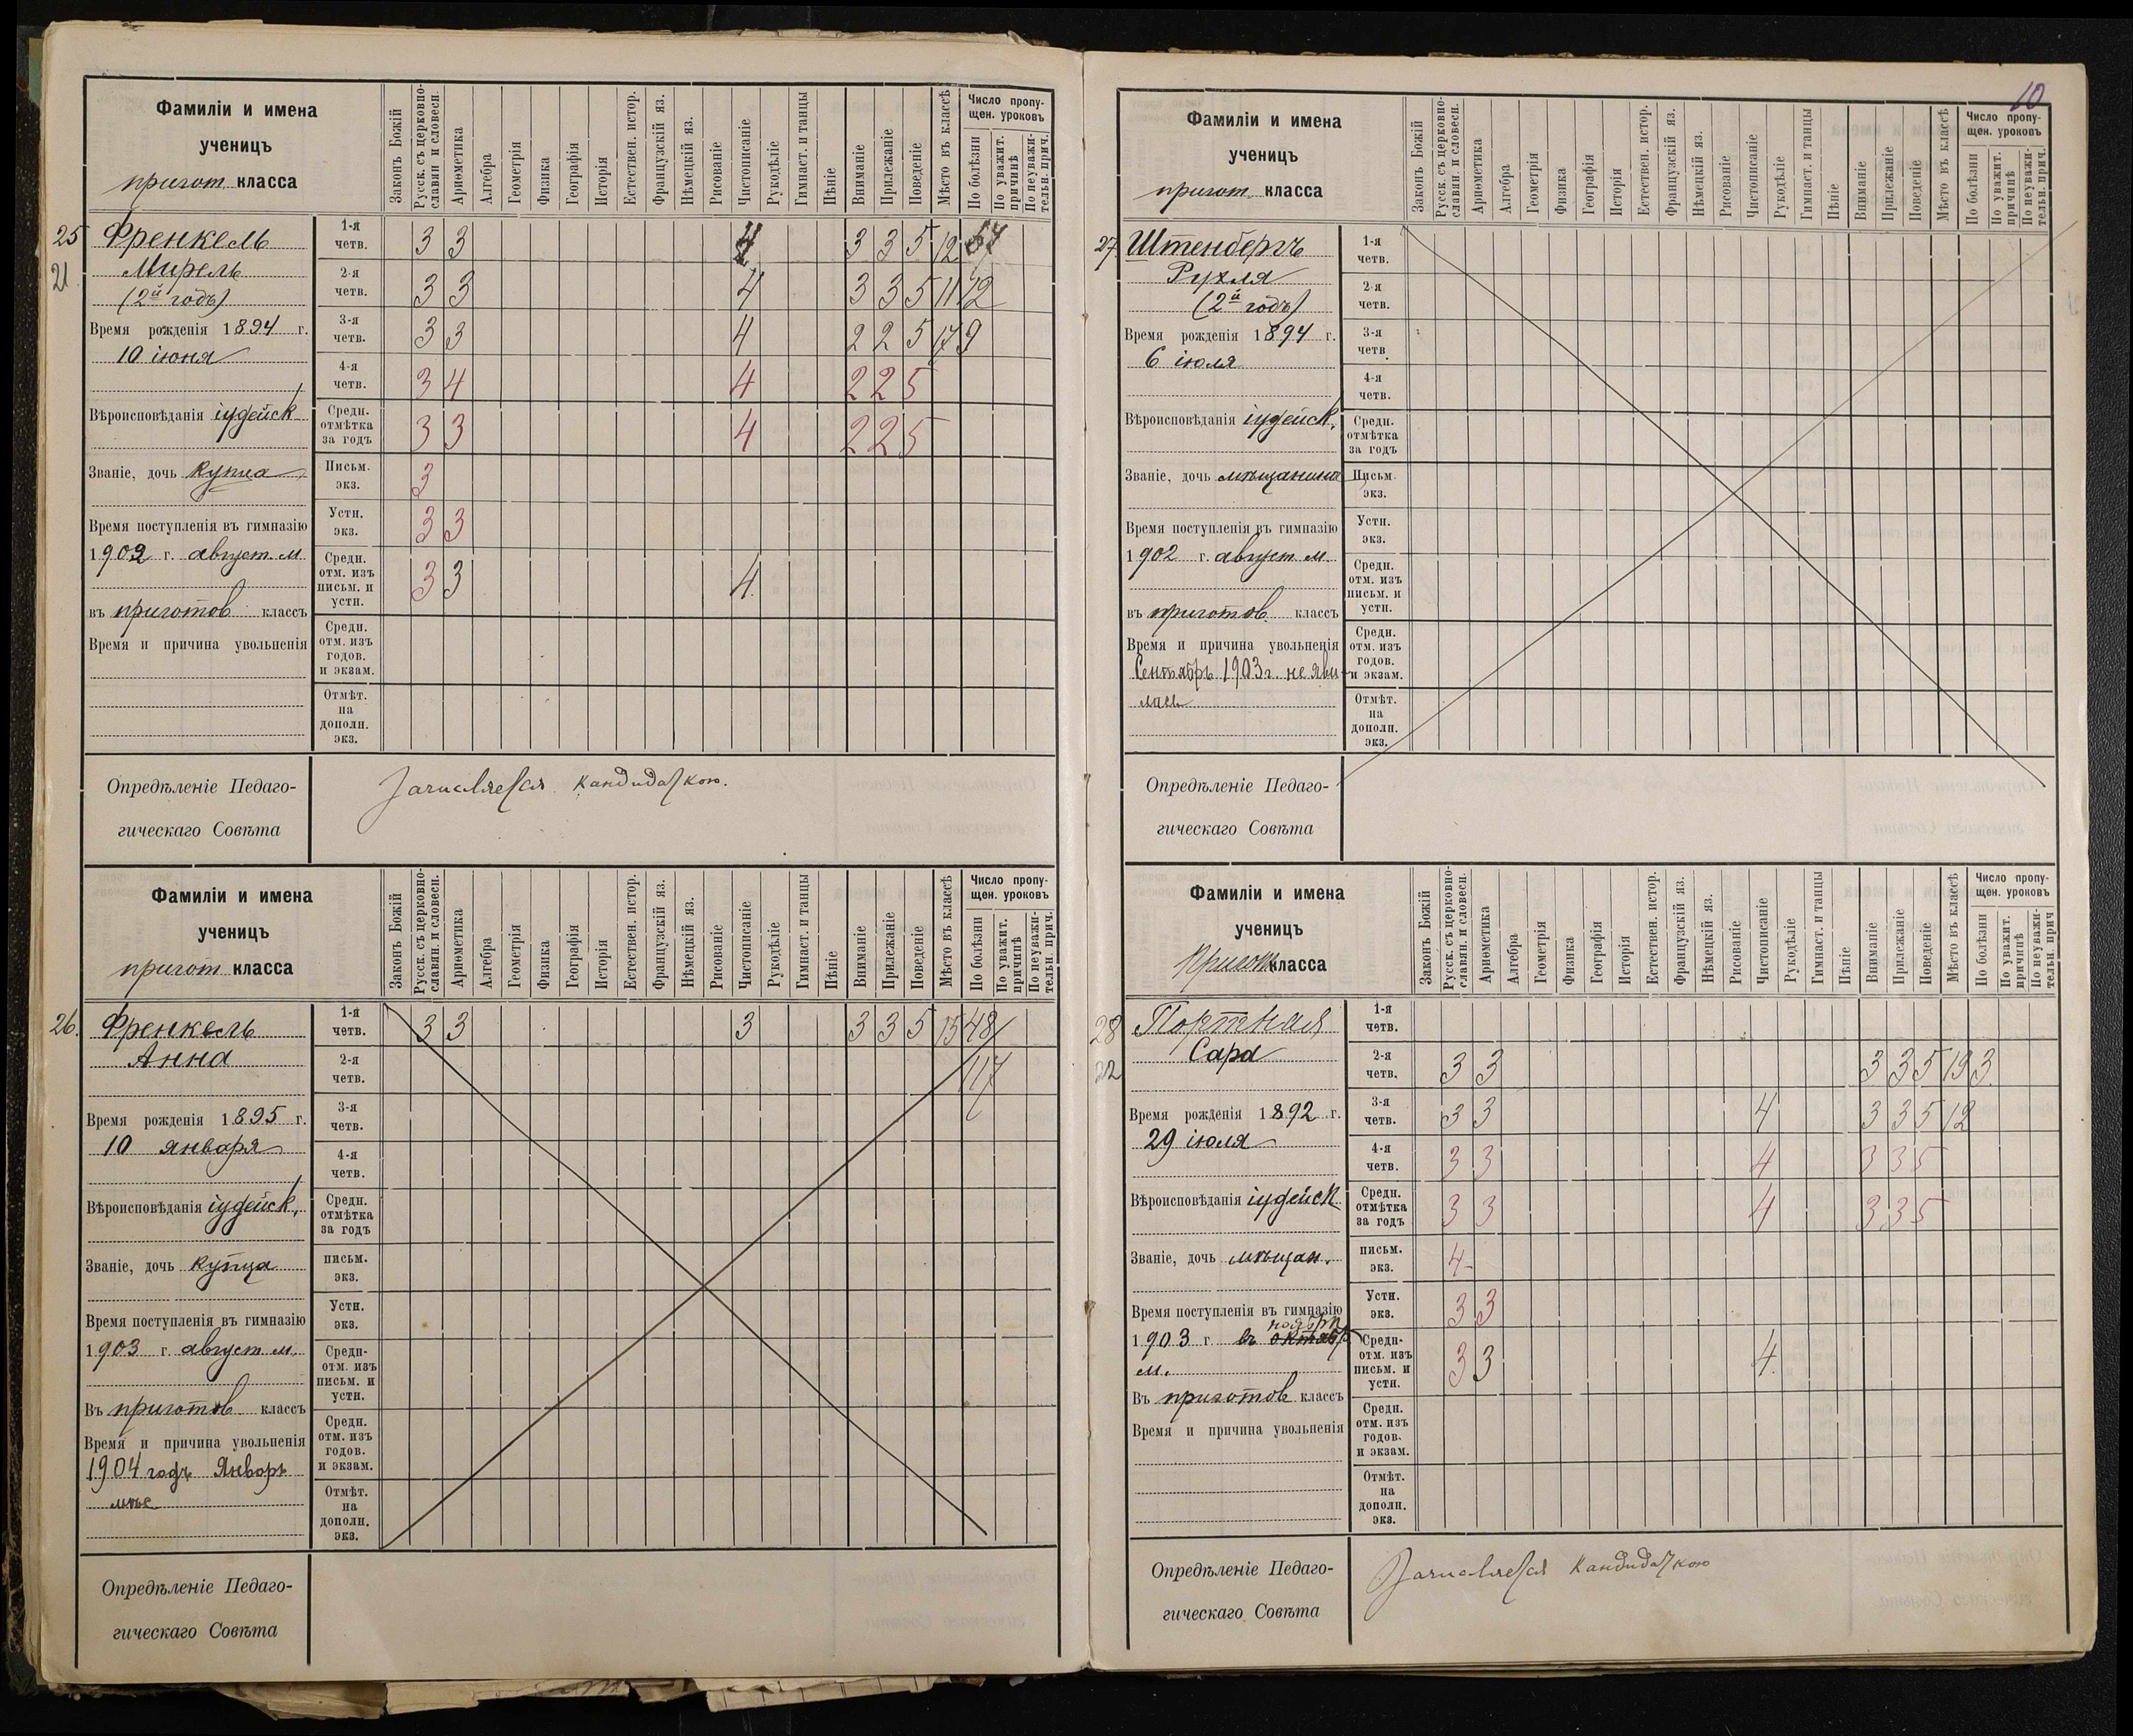 10
Фамиліи и имена
ученицъ
пригот. класса
Законъ Божій
Русск. съ церковно-
славян и словесн.
Ариѳметика
Алгебра
Геометрія
Физика
Географія
Исторія
Естествен. истор.
Французскій яз.
Нѣмецкій яз.
Рисованіе
Чистописаніе
Рукодѣліе
Гимнаст. и танцы
Пѣніе
Вниманіе
Прилежаніе
Поведеніе
Мѣсто въ классѣ
Число пропу-
щен. уроковъ
По болѣзни
По уважит.
причинѣ
По неуважи-
тельн. прич.
25
21
Френкель
Мирель
(2й годъ)
Время рожденія 1894 г.
10 іюня
Вѣроисповѣданія іудейск
Званіе, дочь купца
Время поступленія въ гимназію
1902 г. август. м
въ приготов классъ
Время и причина увольненія
1-я четв. 3 3 4 3 3 5 12
2-я четв. 3 3 4 3 3 5 11 12
3-я четв. 3 3 4 2 2 5 17 9
4-я четв. 3 4 4 2 2 5
Средн. отмѣтка за годъ 3 3 4 2 2 5
Письм. экз. 3
Устн. экз. 3 3
Средн. отм. изъ письм. и устн. 3 3 4
Средн. отм. изъ годов. и экзам.
Отмѣт. на дополн. экз.
Опредѣленіе Педаго-
гическаго Совѣта
Зачисляется кандидаткою.
Фамиліи и имена
ученицъ
пригот класса
Законъ Божій
Русск. съ церковно-
славян. и словесн.
Ариѳметика
Алгебра
Геометрія
Физика
Географія
Исторія
Естествен. истор.
Французскій яз.
Нѣмецкій яз.
Рисованіе
Чистописаніе
Рукодѣліе
Гимнаст. и танцы
Пѣніе
Вниманіе
Прилежаніе
Поведеніе
Мѣсто въ классѣ
Число пропу-
щен. уроковъ
По болѣзни
По уважит.
причинѣ
По неуважи-
тельн. прич.
26.
Френкель
Анна
Время рожденія 1895 г.
10 января
Вѣроисповѣданія іудейск.
Званіе, дочь купца
Время поступленія въ гимназію
1903 г август м.
Въ приготов классъ
Время и причина увольненія
1904 годъ Январь
мѣс.
1-я четв. 3 3 3 3 3 5 15 48
2-я четв. 117
3-я четв.
4-я четв.
Средн. отмѣтка за годъ
письм. экз.
Устн. экз.
Средн- отм. изъ письм. и устн.
Средн. отм. изъ годов. и экзам.
Отмѣт. на дополн. экз.
Опредѣленіе Педаго-
гическаго Совѣта
Фамиліи и имена
ученицъ
пригот. класса
Законъ Божій
Русск. съ церковно-
славян. и словесн.
Ариѳметика
Алгебра
Геометрія
Физика
Географія
Исторія
Естествен. истор.
Французскій яз.
Нѣмецкій яз.
Рисованіе
Чистописаніе
Рукодѣліе
Гимнаст. и танцы
Пѣніе
Вниманіе
Прилежаніе
Поведеніе
Мѣсто въ классѣ
Число пропу-
щен. уроковъ
По болѣзни
По уважит.
причинѣ
По неуважи-
тельн. прич.
27.
Штенбергъ
Рухля
(2й годъ)
Время рожденія 1894 г.
6 іюля
Вѣроисповѣданія іудейск.
Званіе, дочь мѣщанина
Время поступленія въ гимназію
1902 г август м.
въ приготов. классъ
Время и причина увольненія
Сентябрь 1903 г. не яви-
лась
1-я четв.
2-я четв.
3-я четв.
4-я четв.
Средн. отмѣтка за годъ
Письм. экз.
Устн. экз.
Средн. отм. изъ письм. и устн.
Средн. отм. изъ годов. и экзам.
Отмѣт. на дополн. экз.
Опредѣленіе Педаго-
гическаго Совѣта
Фамиліи и имена
ученицъ
Пригот. класса
Законъ Божій
Русск. съ церковно-
славян. и словесн.
Ариѳметика
Алгебра
Геометрія
Физика
Географія
Исторія
Естествен. истор.
Французскій яз.
Нѣмецкій яз.
Рисованіе
Чистописаніе
Рукодѣліе
Гимнаст. и танцы
Пѣніе
Вниманіе
Прилежаніе
Поведеніе
Мѣсто въ классѣ
Число пропу-
щен. уроковъ
По болѣзни
По уважит.
причинѣ
По неуважи-
тельн. прич
28
22
Портная
Сара
Время рожденія 1892 г.
29 іюля
Вѣроисповѣданія іудейск.
Званіе, дочь мѣщан.
Время поступленія въ гимназію
ноябрѣ
1903 г въ октяб
м.
Въ приготов классъ
Время и причина увольненія
1-я четв.
2-я четв. 3 3 3 3 5 19 3
3-я четв. 3 3 4 3 3 5 12
4-я четв. 3 3 4 3 3 5
Средн. отмѣтка за годъ 3 3 4 3 3 5
письм. экз. 4-
Устн. экз. 3 3
Средн- отм. изъ письм. и устн. 3 3 4
Средн. отм. изъ годов. и экзам.
Отмѣт. на дополн. экз.
Опредѣленіе Педаго-
гическаго Совѣта
Зачисляется кандидаткою